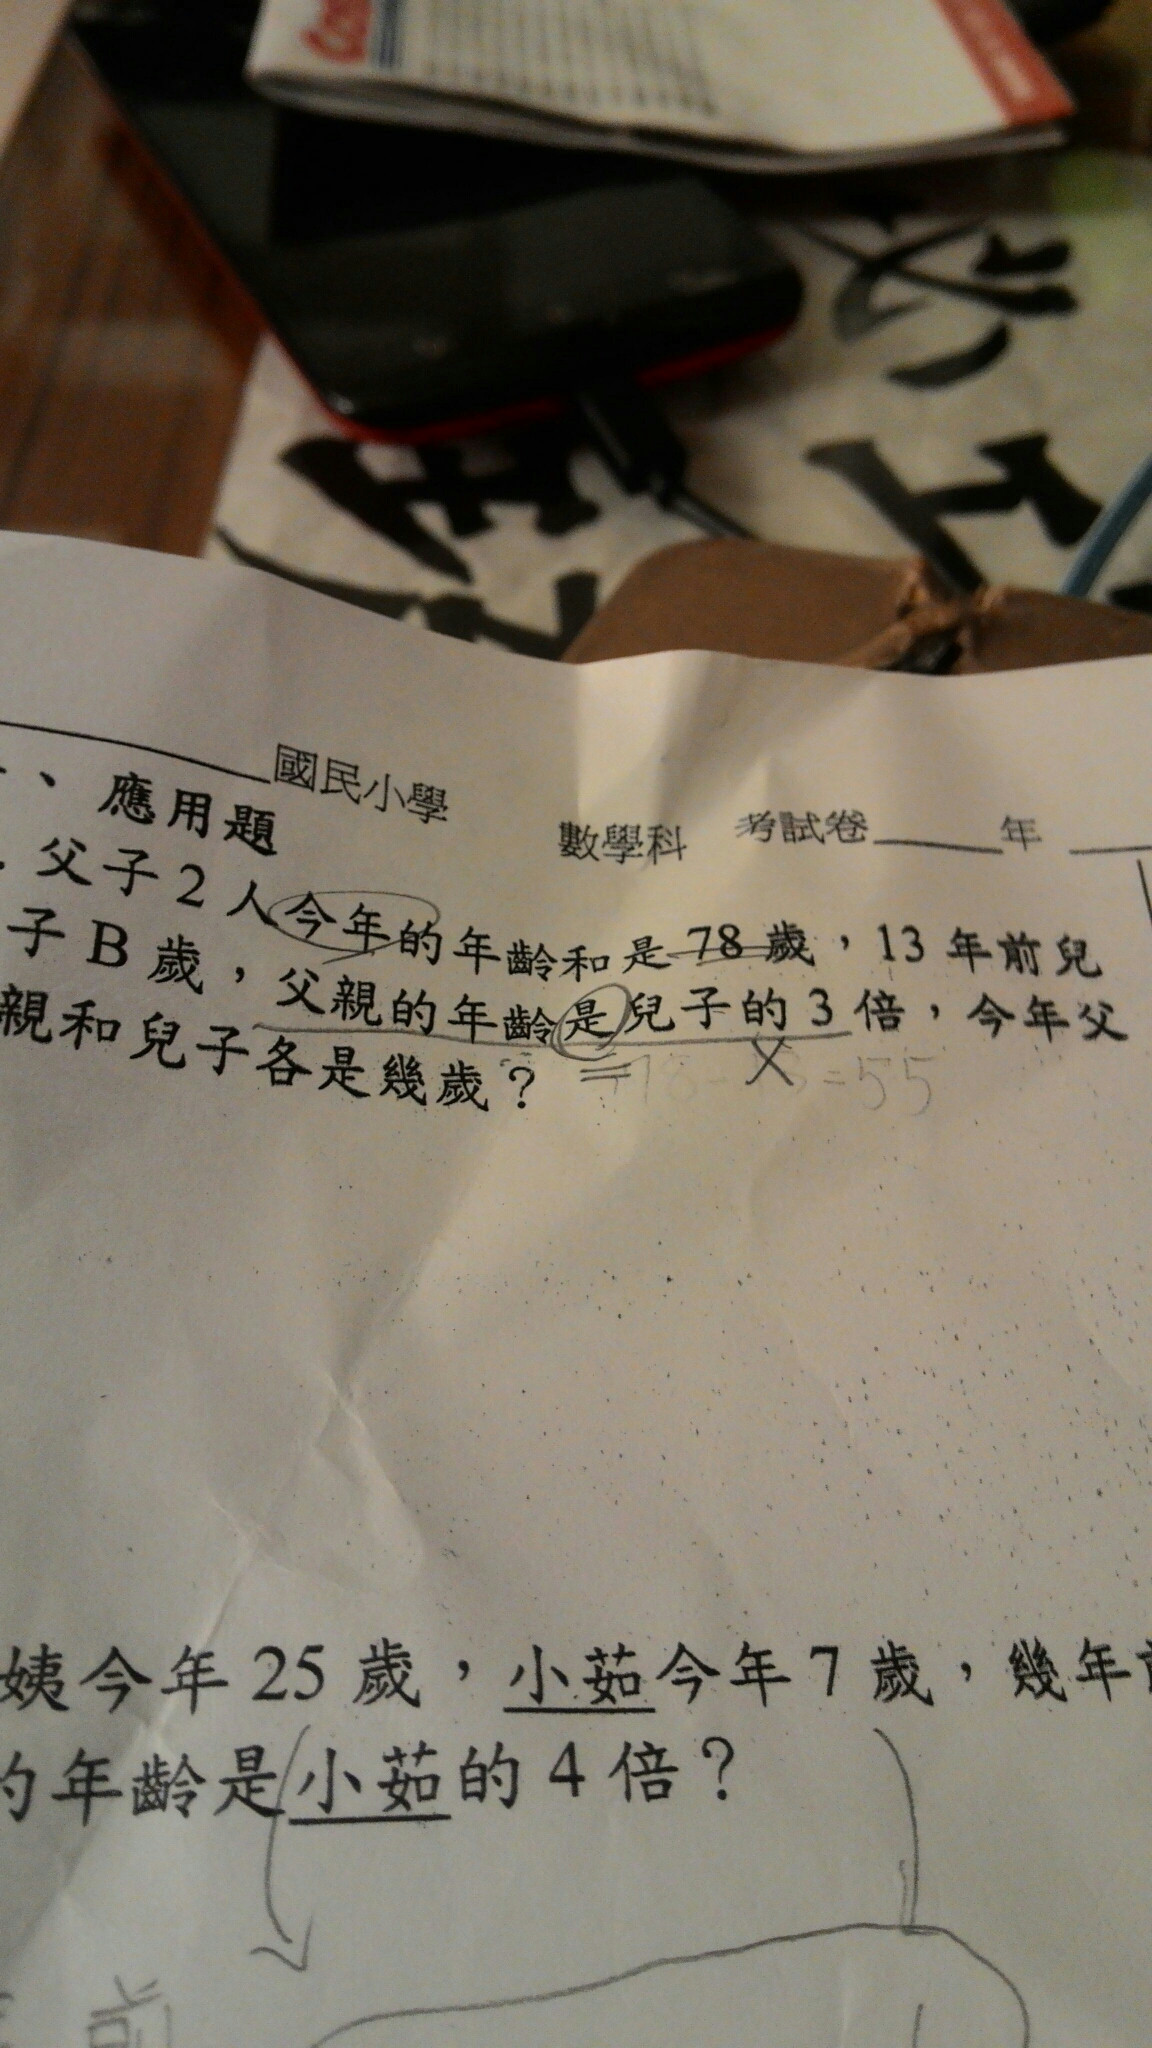 國民小學
數學科 考試卷____年
、應用題
父子2人今年的年齡和是78歲,13年前兒
子B歲,父親的年齡是兒子的3倍,今年父
親和兒子各是幾歲?
=55
姨今年25歲,小茹今年7歲,幾年
的年齡是小茹的4倍?
前